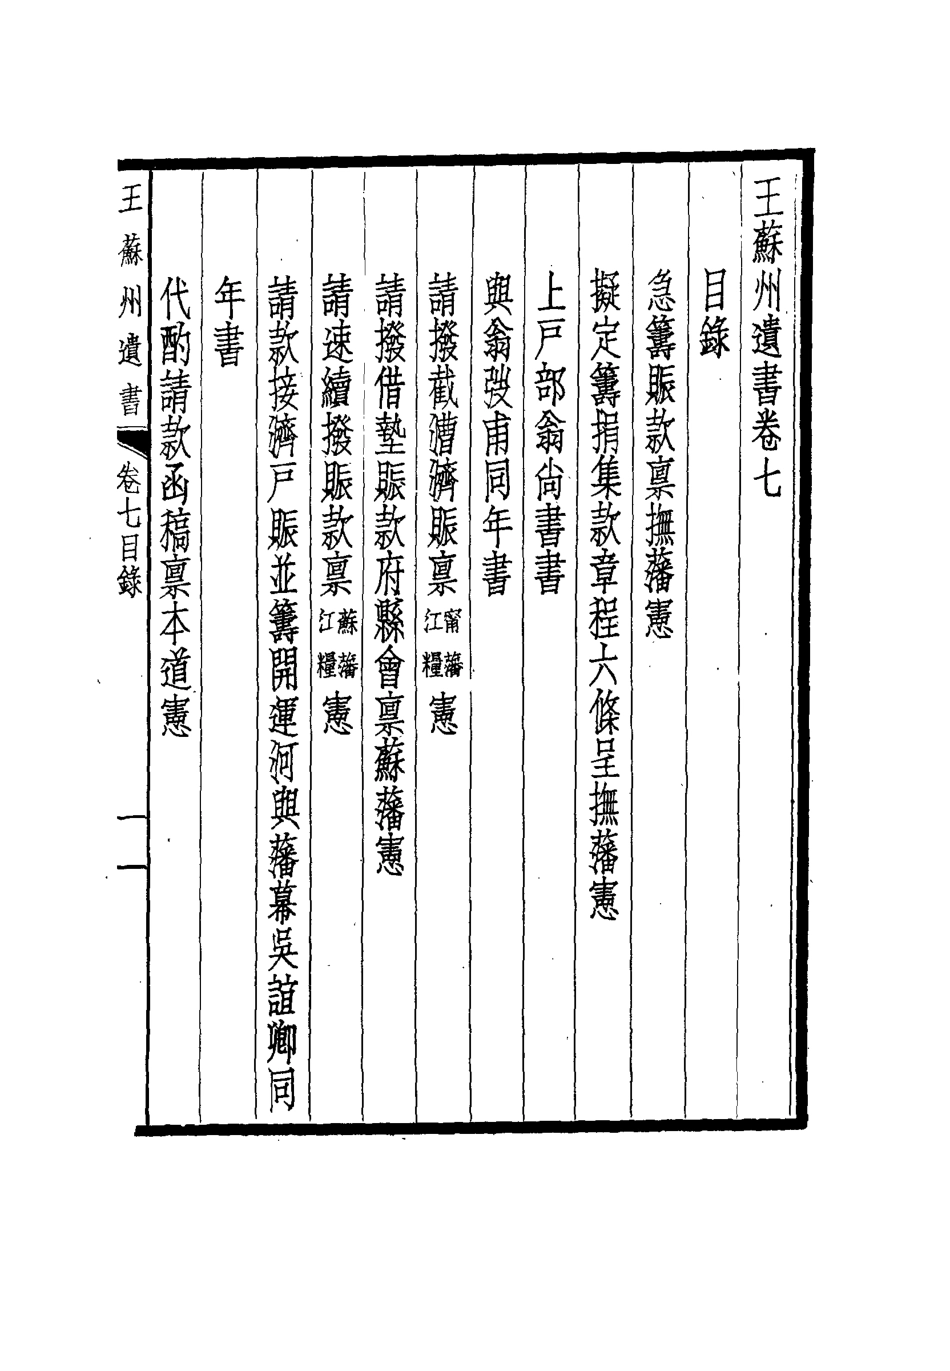 王蘇州遺書卷七
目錄
急籌賑款禀撫藩憲
擬定籌捐集款章程六條呈撫藩憲
上戶部翁尚書書
與翁弢甫同年書
請撥截漕濟賑禀甯藩江糧憲
請撥借墊賑款府縣會禀蘇藩憲
請速續撥賑款禀蘇藩江糧憲
請款接濟戶賑並籌開運河與藩幕吳誼卿同
年書
代酌請款函稿禀本道憲
王蘇州遺書 卷七目錄 一